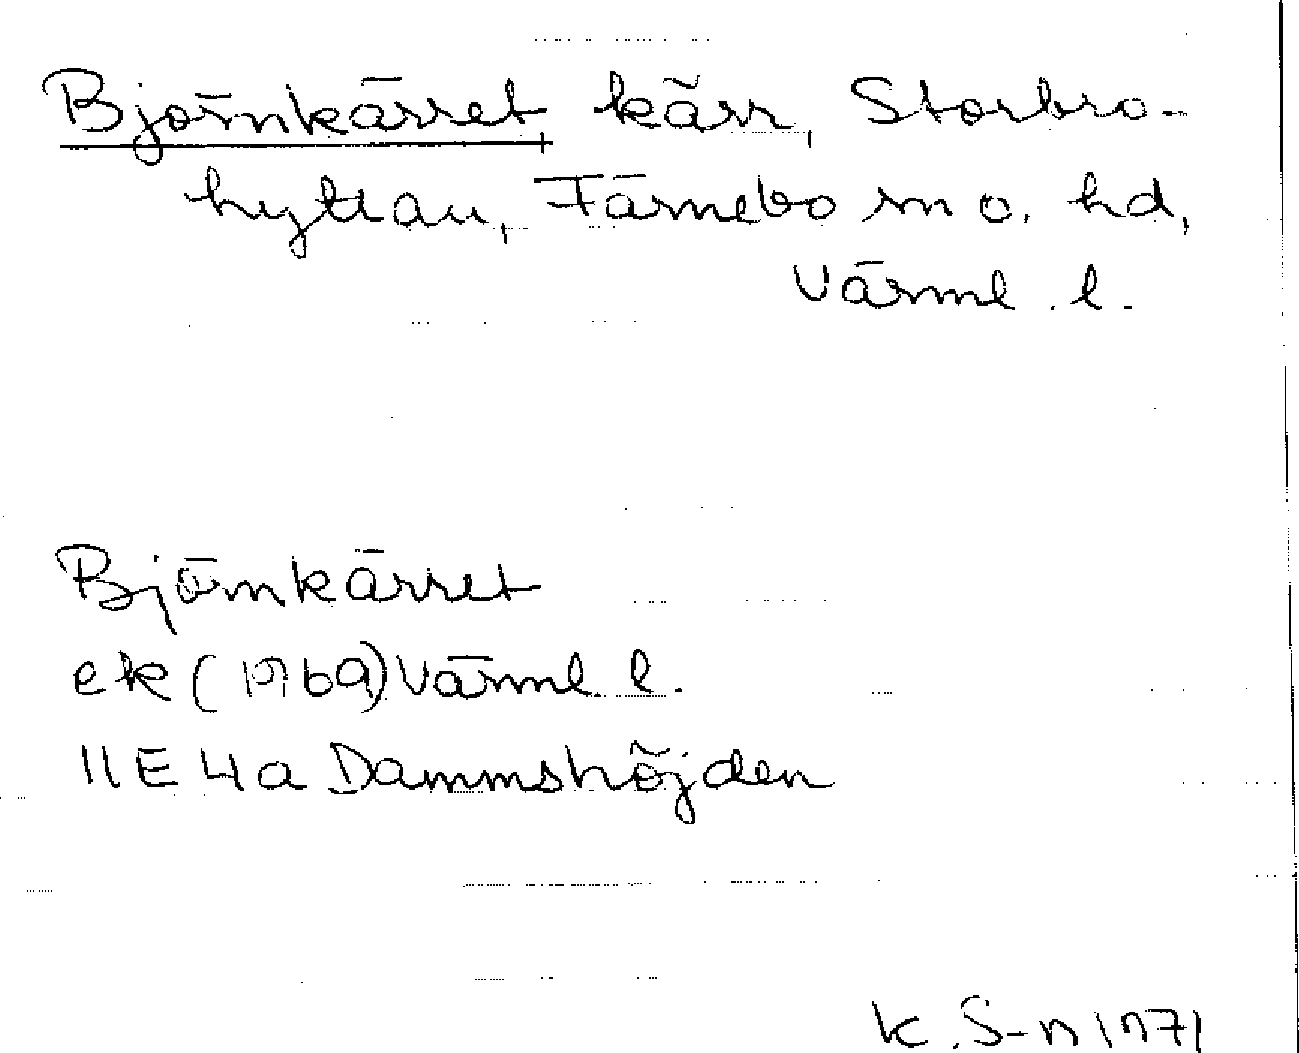 Björnkärret, kärr, Storbro-
hyttan, Färnebo sn o. hd,
Värml. l.
Björnkärret
ek (1969) Värml. l.
11E 4a Dammshöjden
K. S-n 1971